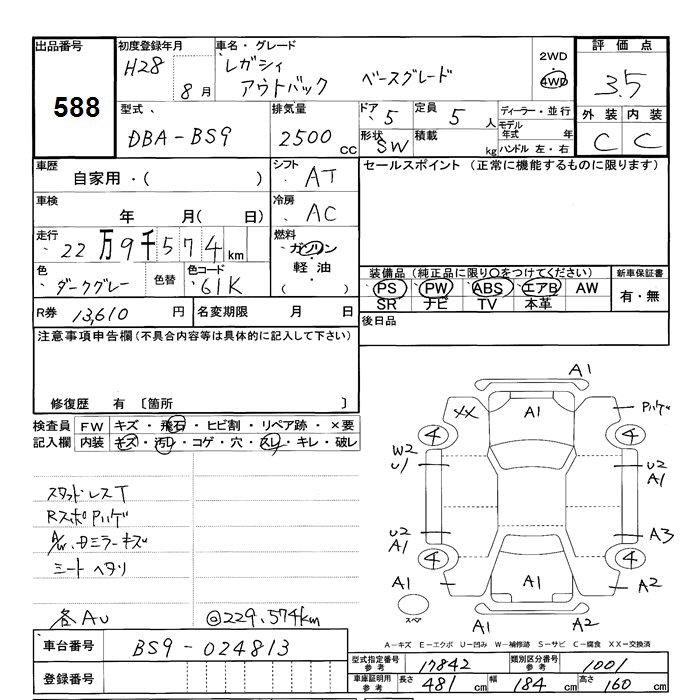 出品番号 初度登録年月 車名・グレード 2WD 評価点
588 H28 8月 レガシィ アウトバック ベースグレード 4WD 3.5
型式 排気量 ドア 5 定員 5人 ディーラー・並行 外装 内装
DBA-BS9 2500cc 形状 SW 積載 kg モデル年式 年 ハンドル 左・右 C C
車歴 シフト セールスポイント (正常に機能するものに限ります)
自家用・( ) AT
車検 冷房
年 月( 日) AC
走行 燃料
22万9千574km ガソリン
色 色替 色コード 軽油 装備品 (純正品に限り〇をつけてください) 新車保証書
ダークグレー 61K ( ) PS PW ABS エアB AW 有・無
SR ナビ TV 本革
R券 13,610円 名変期限 月 日 後日品
注意事項申告欄 (不具合内容等は具体的に記入して下さい)
修復歴 有 〔箇所 〕
検査員 FW キズ・飛石・ヒビ割・リペア跡・×要
記入欄 内装 キズ・汚レ・コゲ・穴・スレ・キレ・破レ
A1
XX A1 Pハゲ
4 4
W2 U1 U2 A1
U2 A1 A3
4 4
A1 A1 A2
スペア A1 A2
スタッドレスT
RスポPハゲ
A/W.ドミラーキズ
シートヘタリ
各AU @229,574km
A−キズ E−エクボ U−凹み W−補修跡 S−サビ C−腐食 XX−交換済
車台番号 BS9-024813 型式指定番号 参考 17842 類別区分番号 参考 1001
登録番号 車庫証明用 参考 長さ 481cm 幅 184cm 高さ 160cm